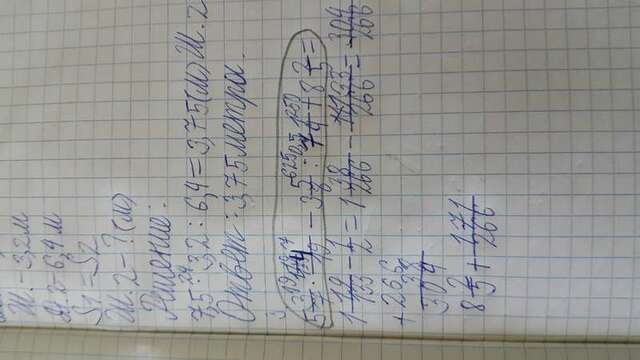 Ш. - 3,2 м
Д. 2 - 6,4 м
S1 = S2
Ш. 2 - ? (м)
Решение:
7,5 · 3,2 : 6,4 = 3,75 (м) Ш. 2
Ответ: 3,75 метра.
3
1 19/133 - 1/2 = 1 38/266 - 133/266 = 304/266
+ 266
38
304
8 2/5 + 171/266